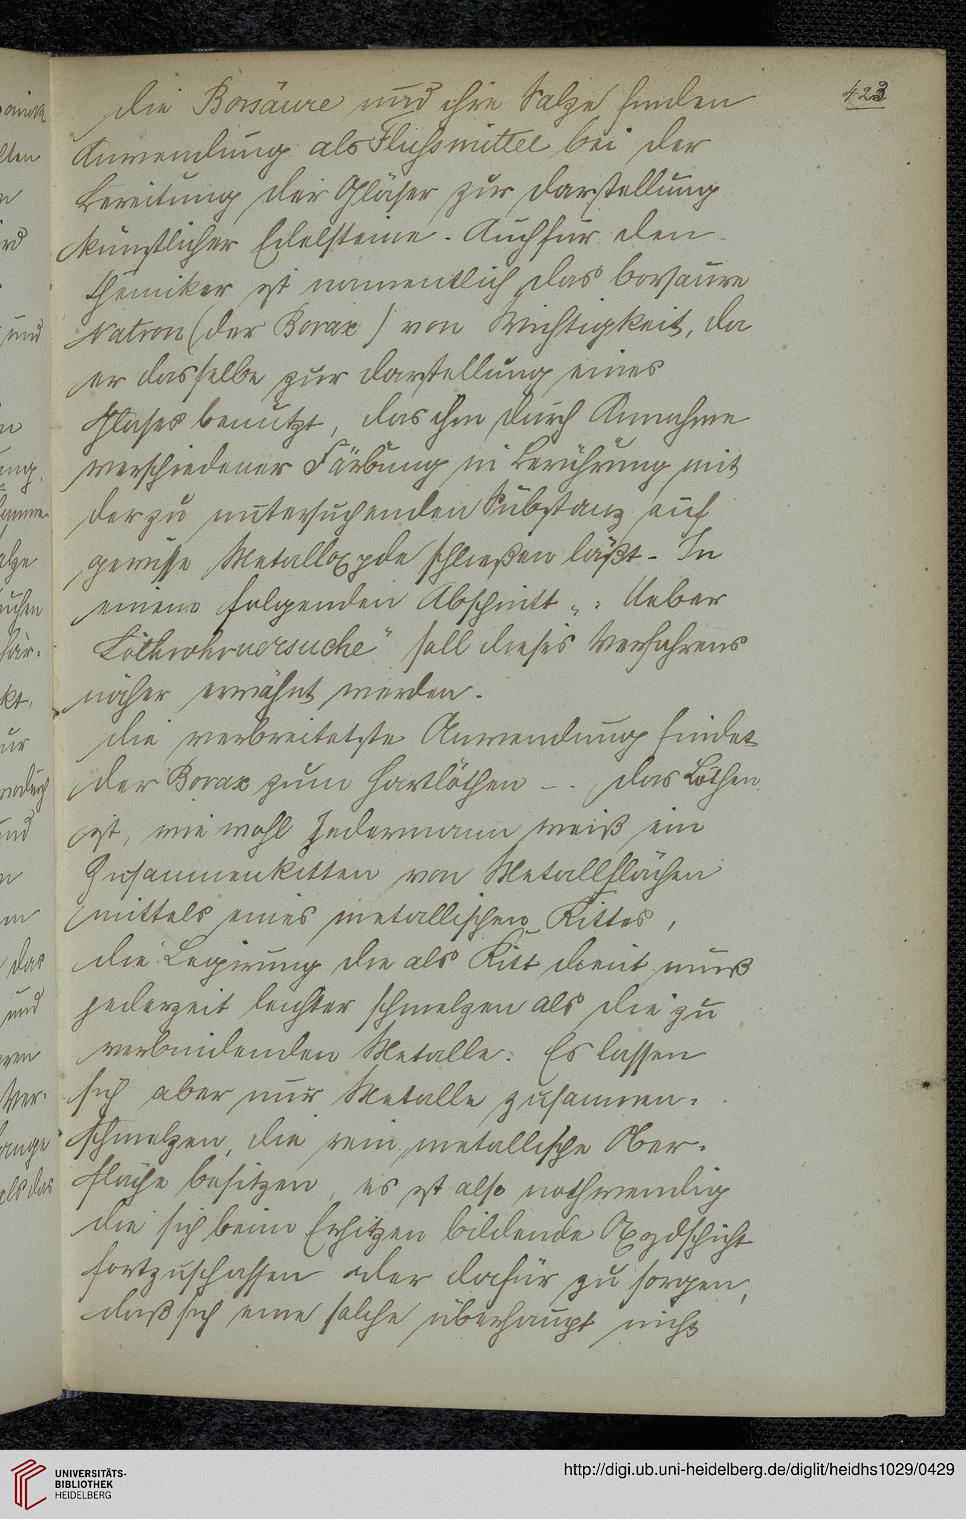 423
Die Borsäure und ihre Salze finden
Anwendung als Flußmittel bei der
Bereitung der Gläser zur Darstellung
künstlicher Edelsteine. Auch für den
Chemiker ist namentlich das borsaure
Natron (der Borax) von Wichtigkeit, da
er dasselbe zur Darstellung eines
Glases benutzt, das ihm durch Annahme
verschiedener Färbung in Berührung mit
der zu untersuchenden Substanz auf
gewisse Metalloxyde schließen läßt. In
einem folgenden Abschnitt „: Ueber
Löthrohrversuche" soll dieses Verfahrens
näher erwähnt werden.
Die verbreitetste Anwendung findet
der Borax zum Hartlöthen –. Das Löthen
ist, wie wohl Jedermann weiß ein
Zusammenkitten von Metallflächen
mittels eines metallischen Kittes,
die Legirung die als Kitt dient muß
jederzeit leichter schmelzen als die zu
verbindenden Metalle. Es lassen
sich aber nur Metalle zusammen-
schmelzen, die rein metallische Ober-
fläche besitzen, es ist also nothwendig
die sich beim Erhitzen bildende Oxydschicht
fortzuschaffen oder dafür zu sorgen,
daß sich eine solche überhaupt nicht
UNIVERSITÄTS-
BIBLIOTHEK
HEIDELBERG
http://digi.ub.uni-heidelberg.de/diglit/heidhs1029/0429